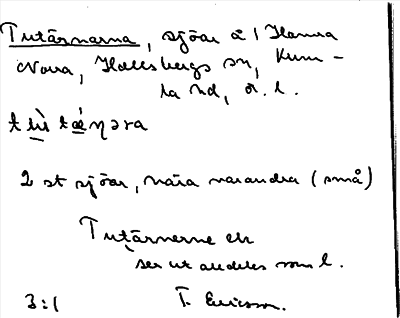 Tutärnarna, sjöar å 1 Hamra
Nora, Hallsbergs sn, Kum-
la hd, ö. l.
2 st sjöar, nära varandra (små)
Tutärnerne
ser ut alldeles som l.
3:1 T. Ericson.